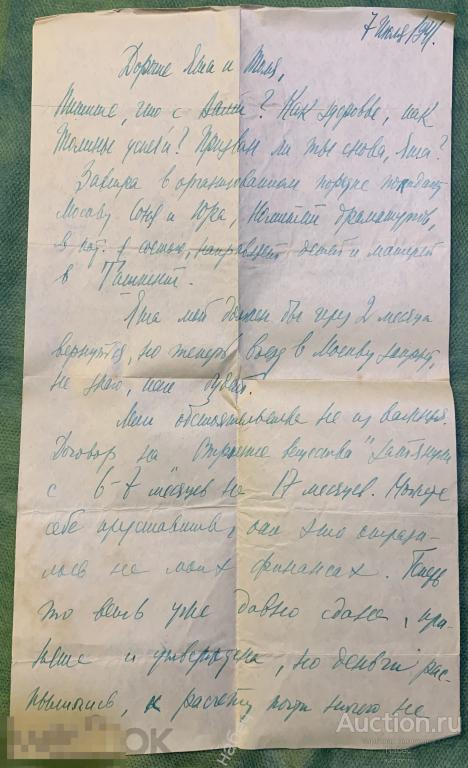 7 июля 1941.
Дорогие Яша и Толя,
Пишите, что с Вами? Как здоровье, как
Толины успехи? Призван ли ты снова, Яша?
Завтра в организованном порядке покидают
Москву Соня и Юра, Комитет драматургов,
в кот. я состою, направляет детей и матерей
в Ташкент.
Яша мой должен был через 2 месяца
вернуться, но теперь въезд в Москву закрыт,
не знаю, как будет.
Мои обстоятельства не из важных.
Договор на "Строение вещества" затянулся
с 6-7 месяцев на 17 месяцев. Можете
себе представить, как это отрази-
лось на моих финансах. Пьеса
то весь уже давно сдана, при-
нята и утверждена, но деньги рас-
пылились, к расчету почти ничего не
Auction.ru